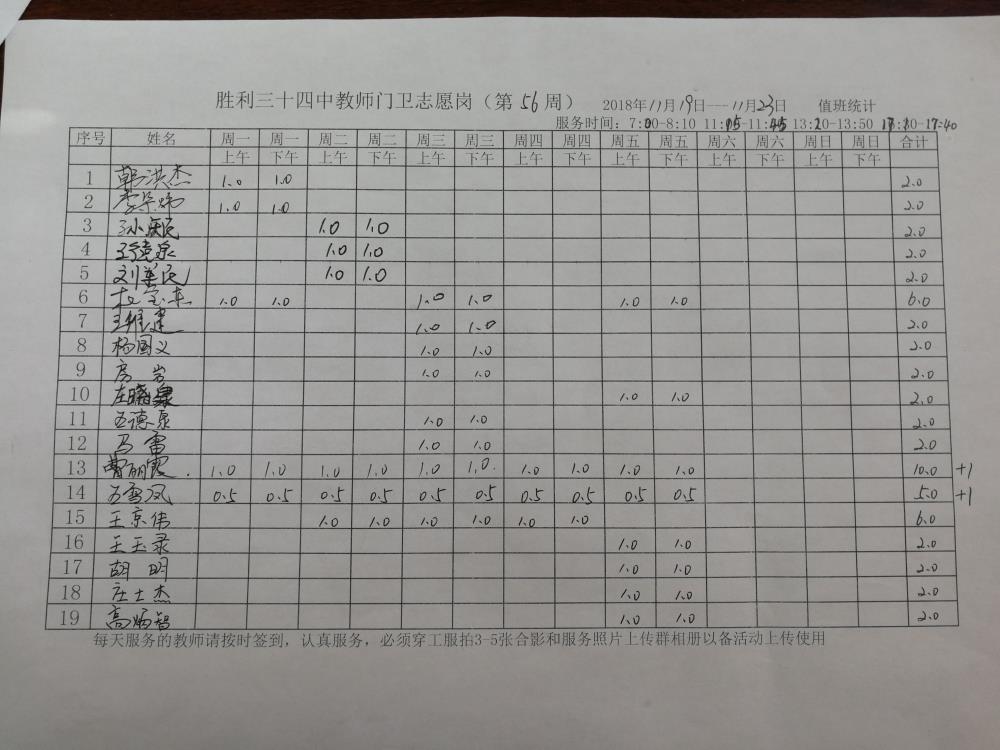 胜利三十四中教师门卫志愿岗（第56周） 2018年11月19日---11月23日 值班统计
服务时间：7:00-8:10 11:15-11:45 13:20-13:50 -17:40
序号 姓名 周一 周一 周二 周二 周三 周三 周四 周四 周五 周五 周六 周六 周日 周日 合计
上午 下午 上午 下午 上午 下午 上午 下午 上午 下午 上午 下午 上午 下午
1 韩洪杰 1.0 1.0 2.0
2 1.0 1.0 2.0
3 1.0 1.0 2.0
4 1.0 1.0 2.0
5 1.0 1.0 2.0
6 杜宝东 1.0 1.0 1.0 1.0 1.0 1.0 6.0
7 王维建 1.0 1.0 2.0
8 杨国义 1.0 1.0 2.0
9 房岩 1.0 1.0 2.0
10 1.0 1.0 2.0
11 王德泉 1.0 1.0 2.0
12 马雷 1.0 1.0 2.0
13 曹丽霞 1.0 1.0 1.0 1.0 1.0 1.0 1.0 1.0 1.0 1.0 10.0 +1
14 王雪凤 0.5 0.5 0.5 0.5 0.5 0.5 0.5 0.5 0.5 0.5 5.0 +1
15 王京伟 1.0 1.0 1.0 1.0 1.0 1.0 6.0
16 王玉录 1.0 1.0 2.0
17 胡明 1.0 1.0 2.0
18 庄士杰 1.0 1.0 2.0
19 高炳智 1.0 1.0 2.0
每天服务的教师请按时签到，认真服务，必须穿工服拍3-5张合影和服务照片上传群相册以备活动上传使用